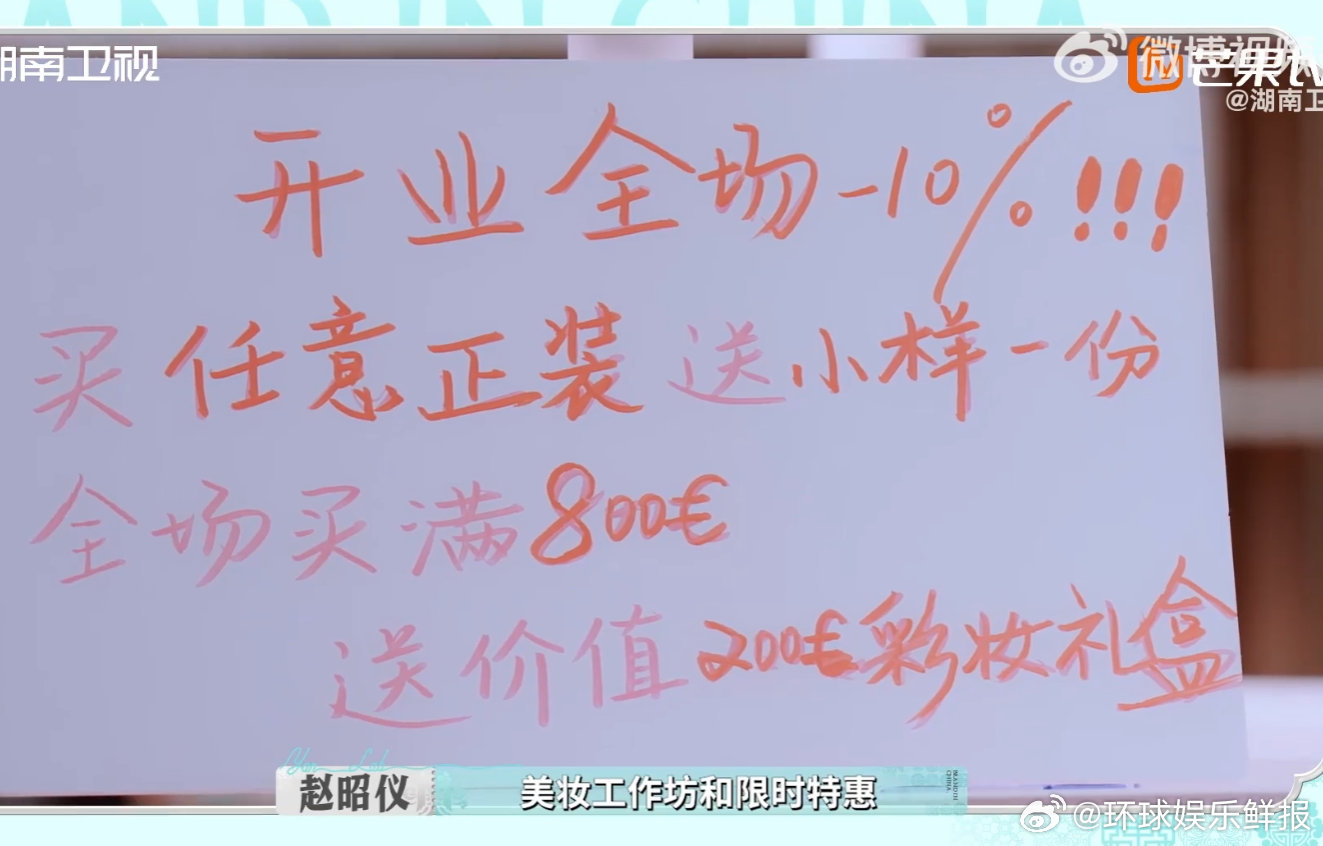 AND IN CHINA
湖南卫视
微博视频
芒果TV
@湖南卫
开业全场-10%!!!
买任意正装送小样一份
全场买满800€
送价值200€彩妆礼盒
赵昭仪
美妆工作坊和限时特惠
@环球娱乐鲜报